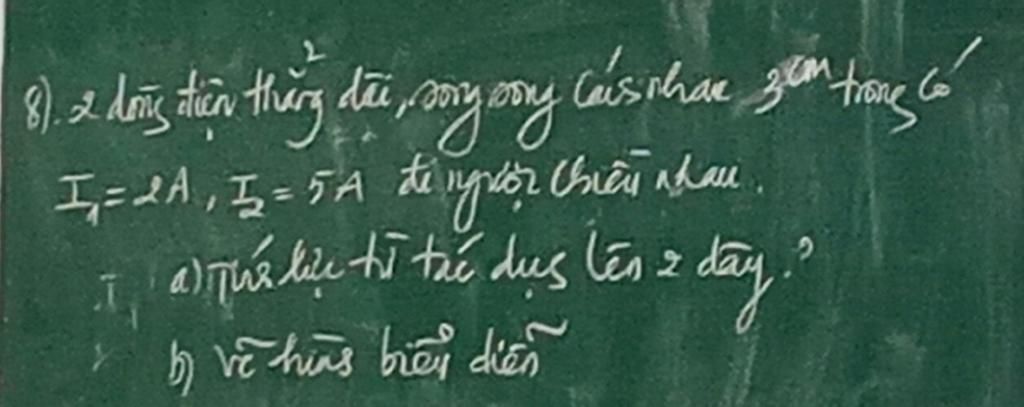 8). 2 dòng điện thẳng dài, song song cách nhau 3cm trong có
I₁ = 2A, I₂ = 5A đi ngược chiều nhau.
a) Tính lực từ tác dụng lên 2 dây.?
b) vẽ hình biểu diễn